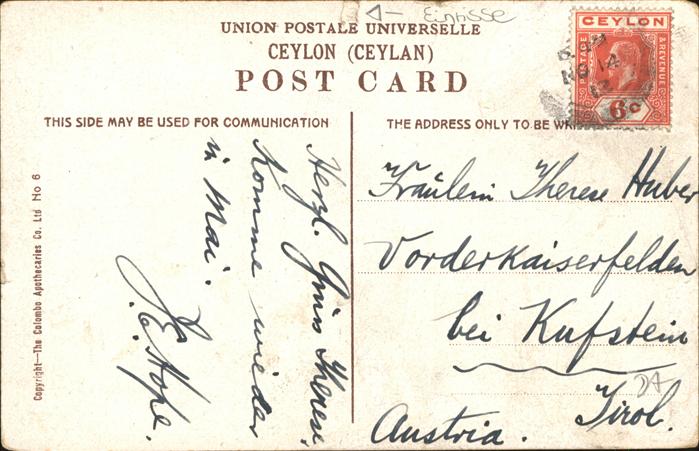 Einrisse
UNION POSTALE UNIVERSELLE
CEYLON (CEYLAN)
POST CARD
THIS SIDE MAY BE USED FOR COMMUNICATION
THE ADDRESS ONLY TO BE
CEYLON
POSTAGE & REVENUE
6c
NO 14
Herzl. Gruss Therese,
Komme wieder
in Mai.
J.E. Hope.
Fräulein Therese Huber
Vorderkaiserfelden
bei Kufstein
Tirol.
Austria.
Copyright—The Colombo Apothecaries Co. Ltd No 6